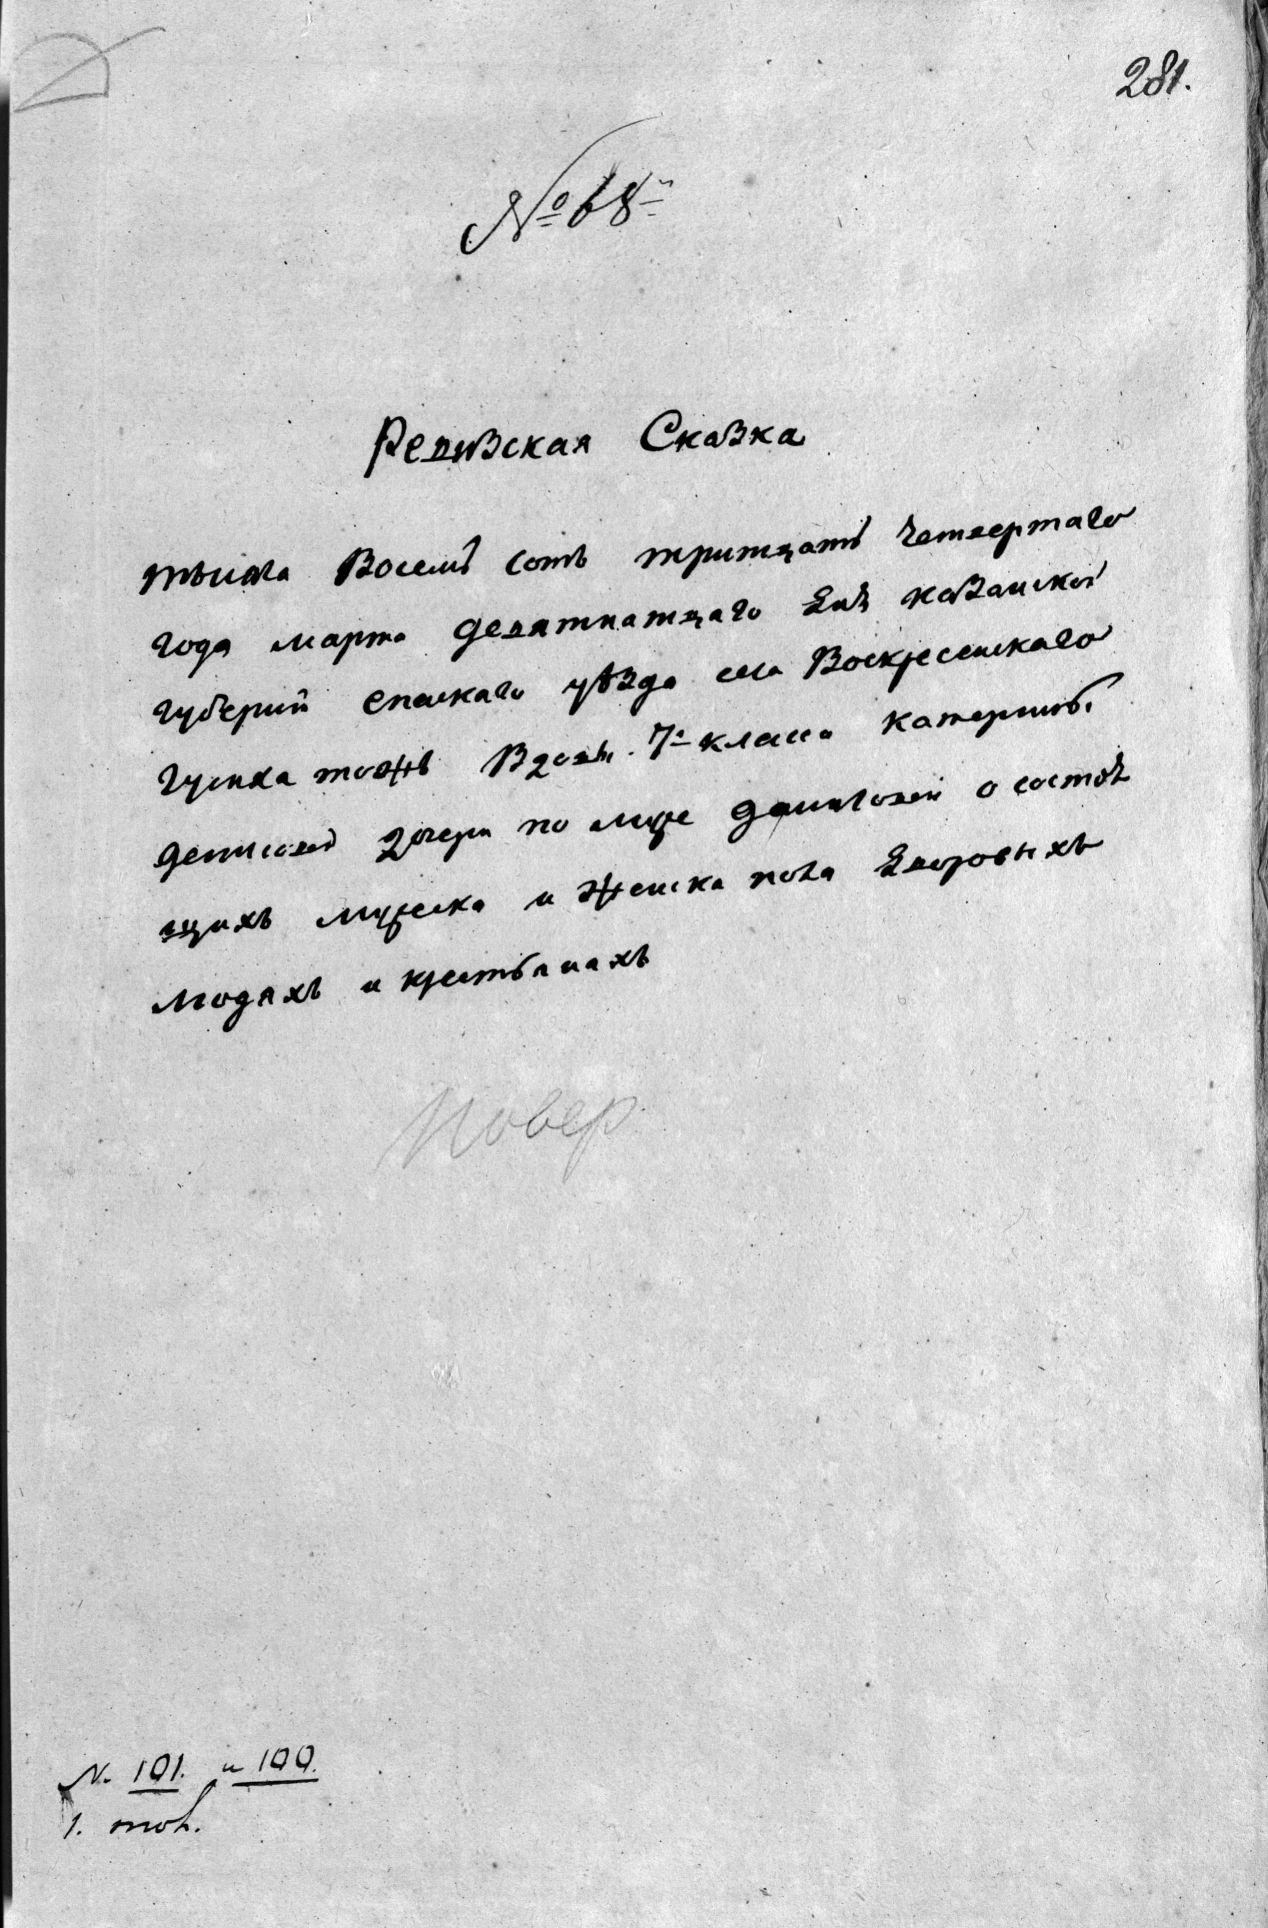 281.
№ 68й
Ревизская Сказка
тысяча Восемь сотъ тритцать четвертаго
года марта девятнатцаго дня казанской
губернии спаскаго уѣзда села Воскресенскаго
тожъ Вдовы 7го класса катерины
денисовой дочери по муже даниловой о состоя
щихъ мужеска и женска пола дворовыхъ
людяхъ и крестьянахъ
повер
N. 101. и 100.
1.